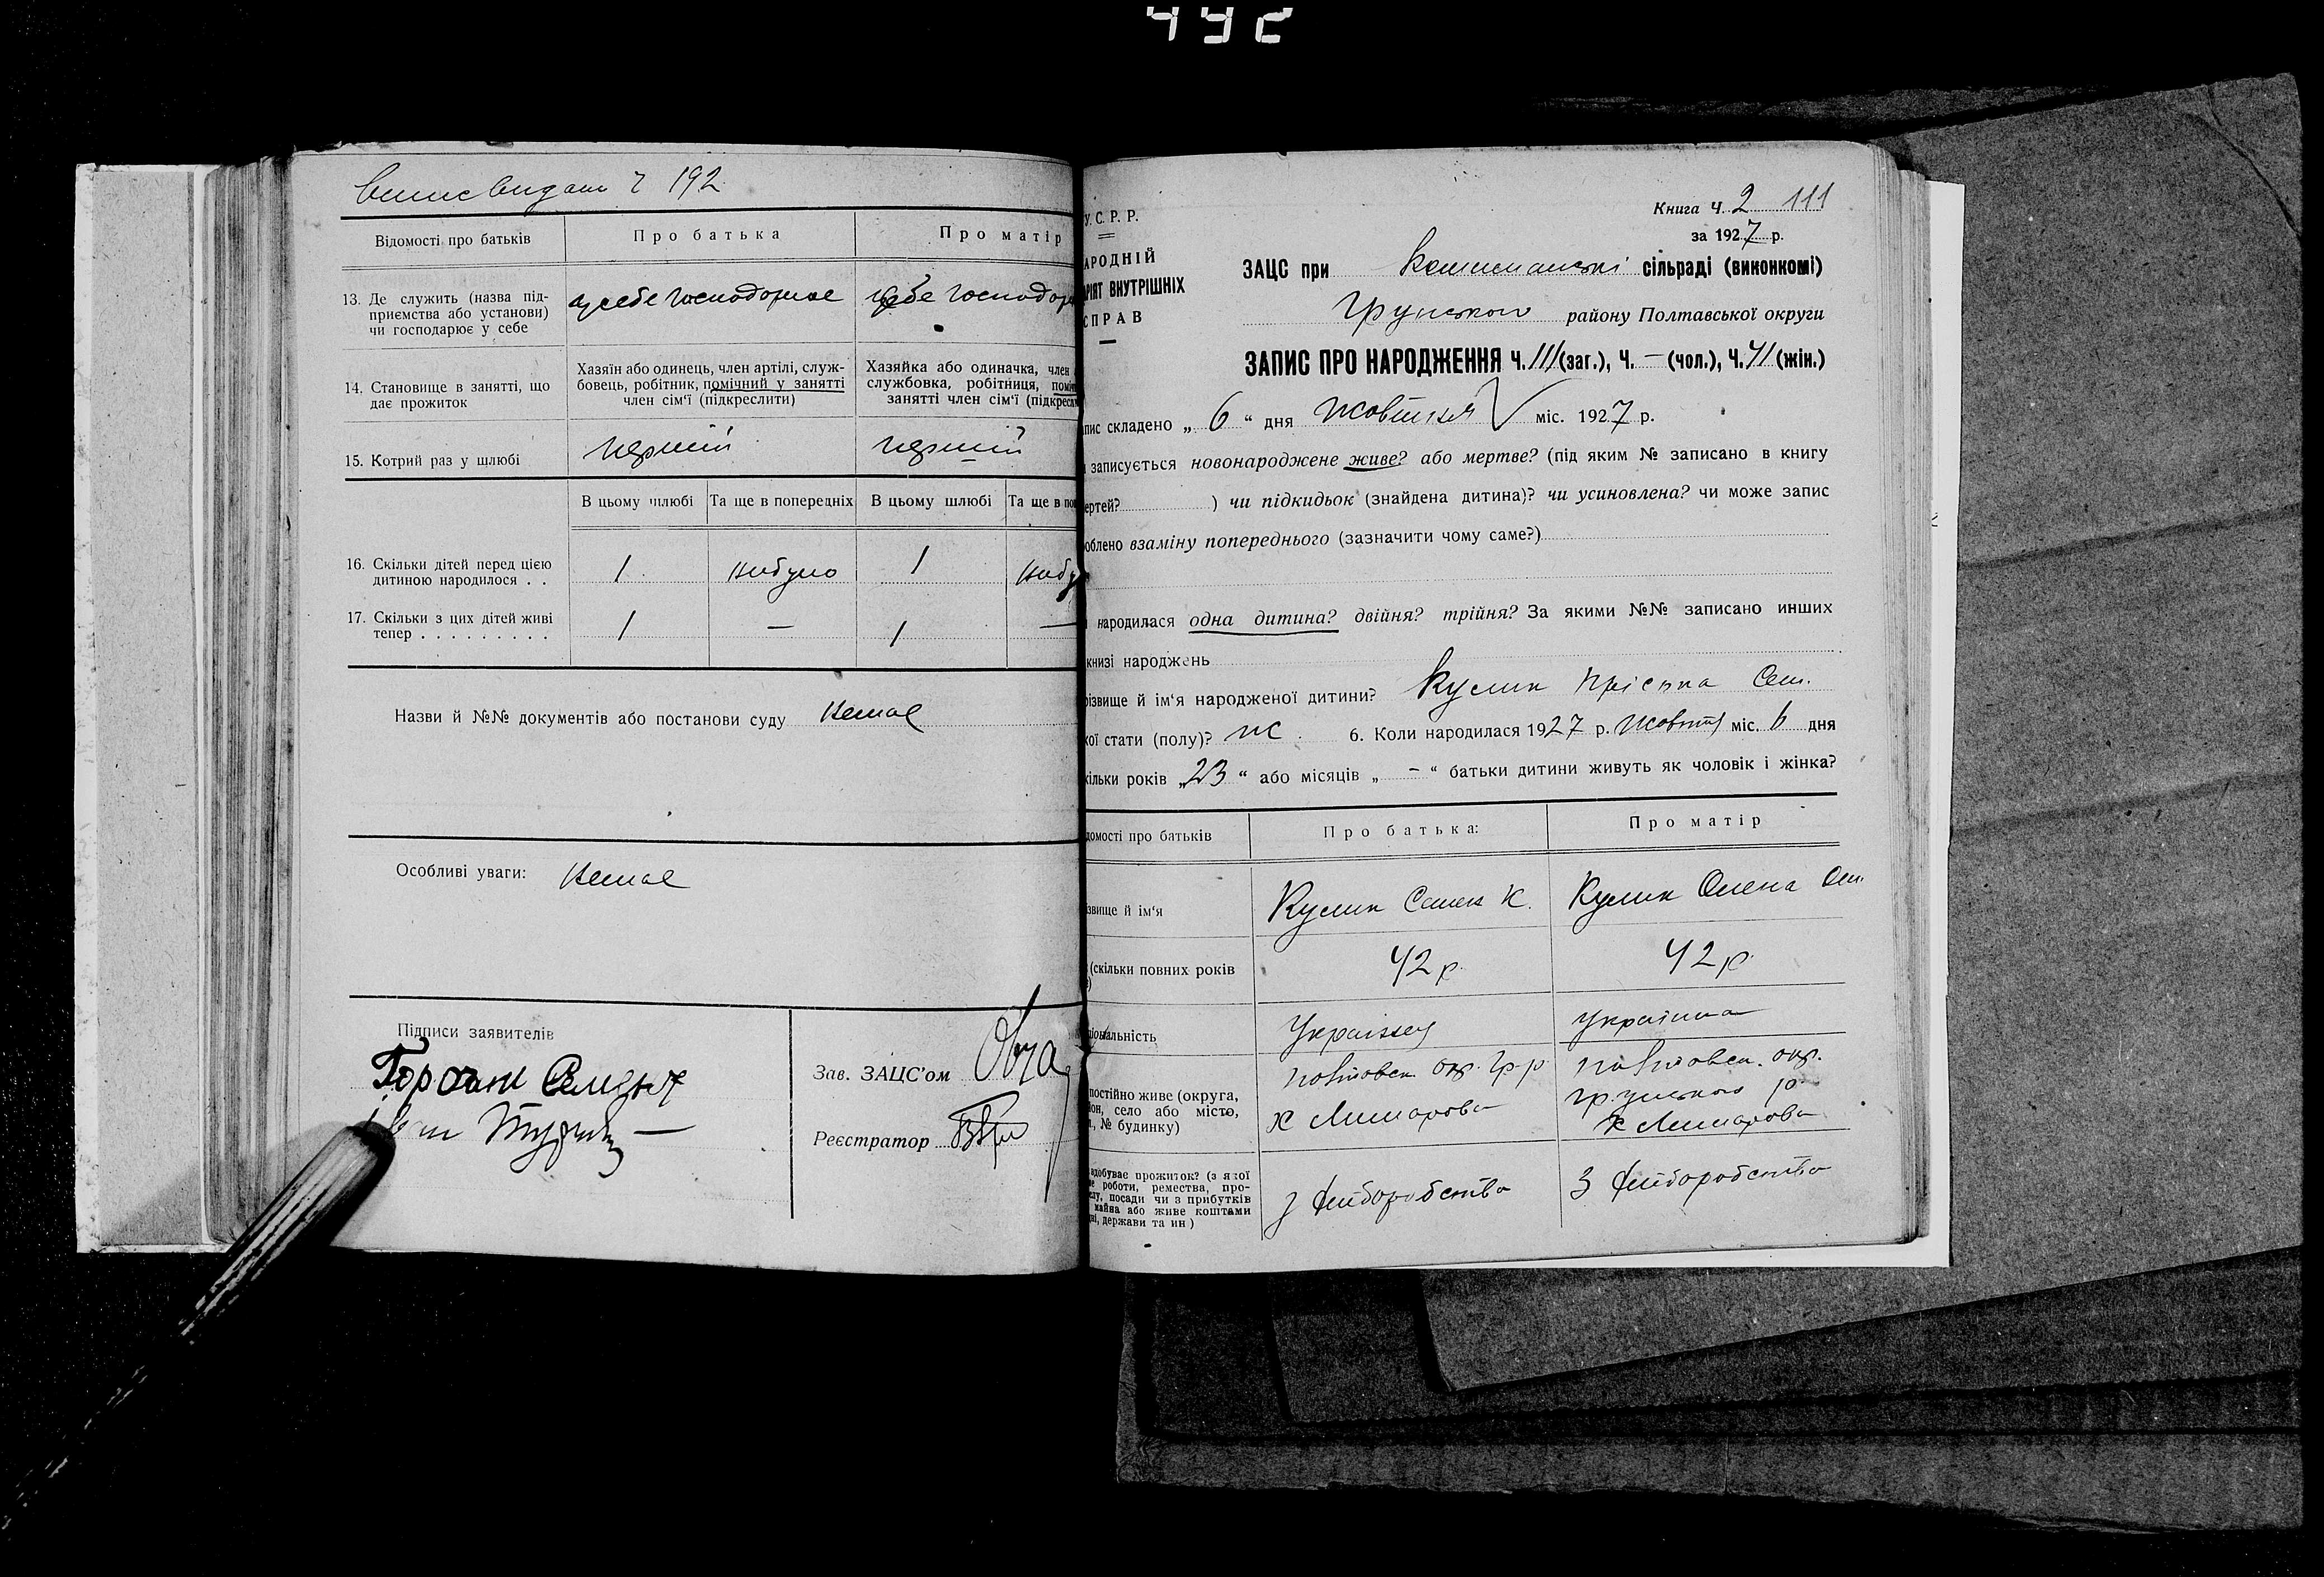 492
Випис видати ч 192
Відомості про батьків
Про батька
Про матір
13. Де служить (назва під-
приємства або установи)
чи господарює у себе
у себе господорює
у себе господор
14. Становище в занятті, що
дає прожиток
Хазяїн або одинець, член артілі, служ-
бовець, робітник, помічний у занятті
член сім'ї (підкреслити)
Хазяйка або одиначка, член
службовка, робітниця, поміч
занятті член сім'ї (підкресли
15. Котрий раз у шлюбі
перший
перший
В цьому шлюбі
Та ще в попередніх
В цьому шлюбі
Та ще в поп
16. Скільки дітей перед цією
дитиною народилося . .
1
небуло
1
небу
17. Скільки з цих дітей живі
тепер . . . . . . . . .
1
—
1
—
Назви й №№ документів або постанови суду немає
Особливі уваги: немає
Підписи заявителів
Зав. ЗАЦС'ом
Реєстратор
У.С.Р.Р.
АРОДНІЙ
АРІЯТ ВНУТРІШНІХ
СПРАВ
Книга Ч. 2 111
за 1927 р.
ЗАЦС при сільраді (виконкомі)
Грунського району Полтавської округи
ЗАПИС ПРО НАРОДЖЕННЯ Ч. 111 (заг.), Ч. — (чол.), Ч. 41 (жін.)
апис складено „ 6 “ дня жовтня міс. 1927 р.
записується новонароджене живе? або мертве? (під яким № записано в книгу
ертей? ) чи підкидьок (знайдена дитина)? чи усиновлена? чи може запис
облено взаміну попереднього (зазначити чому саме?)
народилася одна дитина? двійня? трійня? За якими №№ записано инших
книзі народжень
різвище й ім'я народженої дитини? Кулик Пріська Сем.
кої стати (полу)? ж. 6. Коли народилася 1927 р. жовтня міс. 6 дня
кільки років „ 23 “ або місяців „ – “ батьки дитини живуть як чоловік і жінка?
домості про батьків
Про батька:
Про матір
ізвище й ім'я
Кулик Семен К.
Кулик Олена Сем.
(скільки повних років
42 р.
42 р.
ціональність
Українец
українка
постійно живе (округа,
йон, село або місто,
, № будинку)
полтавск. окр. гр. р
х Лимарова
полтавск. окр.
грунського р.
х Лимарова
здобуває прожиток? (з якої
е роботи, ремества, про-
слу, посади чи з прибутків
майна або живе коштами
ні, держави та ин)
з хліборобства
З хліборобства